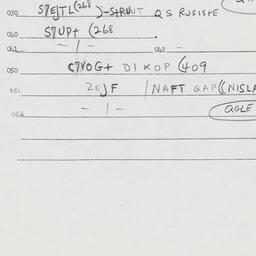 030 S7EJTL(268)-STRUNT QS RUSISTE
060 S7UP+ (268 .
061 - | - 062 -
050 C7VOG+ DIKOP (409
051 ZEJF /NAFT QAP((NISLA
052 - | - QGLE